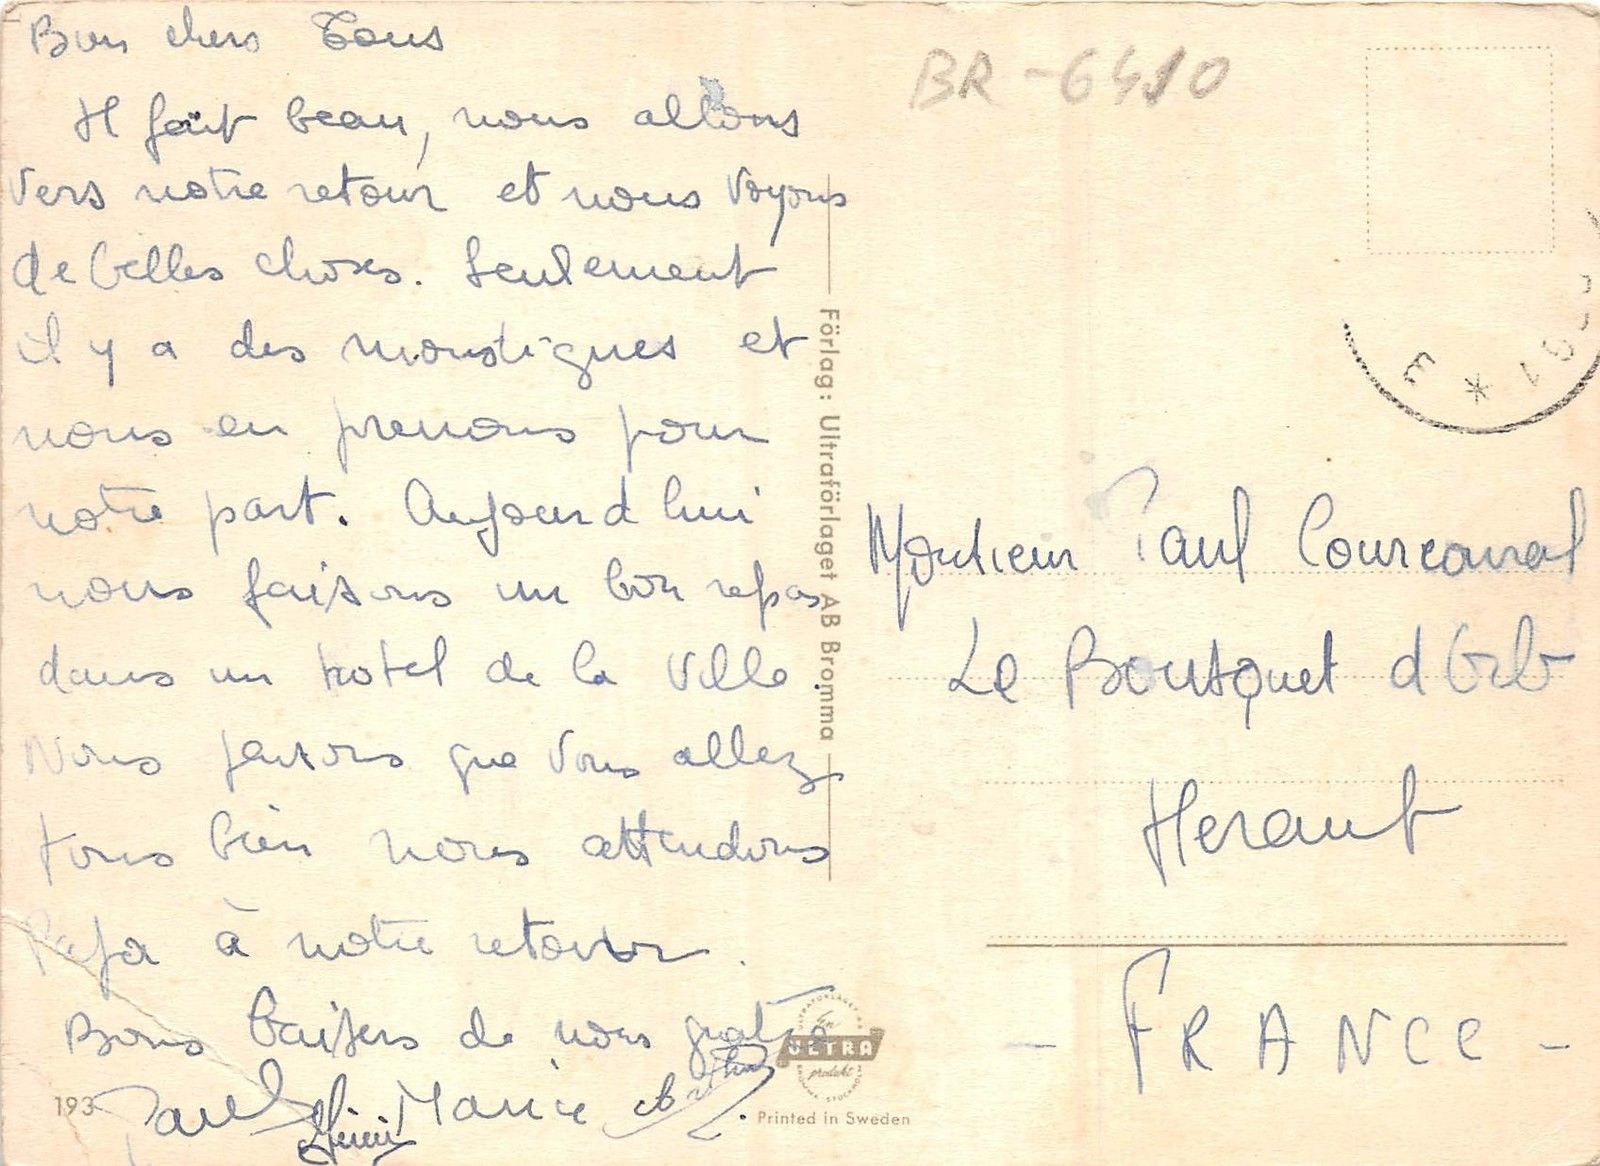 Bien chers Tous
Il fait beau, nous allons
vers notre retour et nous voyons
de belles choses. Seulement
il y a des moustiques et
nous en prenons pour
notre part. Aujourd hui
nous faisons un bon repas
dans un hotel de la Ville.
Nous pensons que vous allez
tous bien nous attendons
Papa à notre retour.
Bons baisers de nous quatre
Paul Marie
193
BR-6410
Förlag: Ultraförlaget AB Bromma
3 * 1 9
Monsieur Paul
Le Bousquet d Orb
Herault
- FRANCE -
ULTRA
produkt
Printed in Sweden